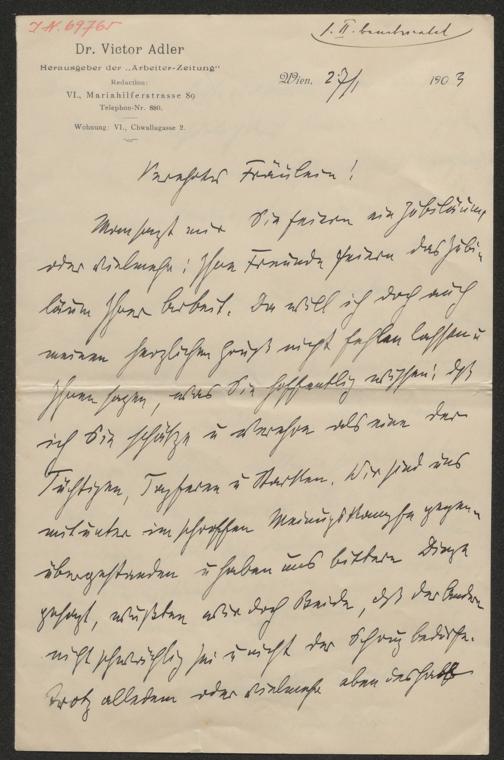 I.N. 69765
1. II. beantwortet
Dr. Victor Adler
Herausgeber der „Arbeiter-Zeitung“
Redaction:
VI., Mariahilferstrasse 89
Telephon-Nr. 880.
Wohnung: VI., Chwallagasse 2.
Wien, 27/1 1903
Verehrtes Fräulein!
Man sagt mir Sie feiern ein Jubiläum,
oder vielmehr: Ihre Freunde feiern das Jubi-
läum Ihrer Arbeit. Da will ich doch auch
meinen herzlichen Gruß nicht fehlen lassen u
Ihnen sagen, was Sie hoffentlich wissen: daß
ich Sie schätze u verehre als eine der
Tüchtigen, Tapferen u Starken. Wir sind uns
mitunter im schroffen Meinungskampfe gegen-
übergestanden u haben uns bittere Dinge
gesagt, wußten wir doch Beide, daß der Andere
nicht schwächlich sei u nicht der Schonung bedürfe.
Trotz alledem oder vielmehr eben deshalb